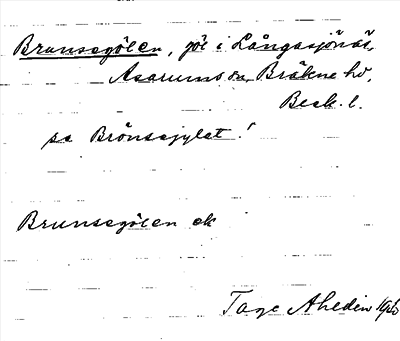 Brunsegölen, göl i Långasjönäs,
Asarums sn, Bräkne hd,
Blek. l.
se Brönsagylet!
Brunsegölen ek
Tage Ahldin